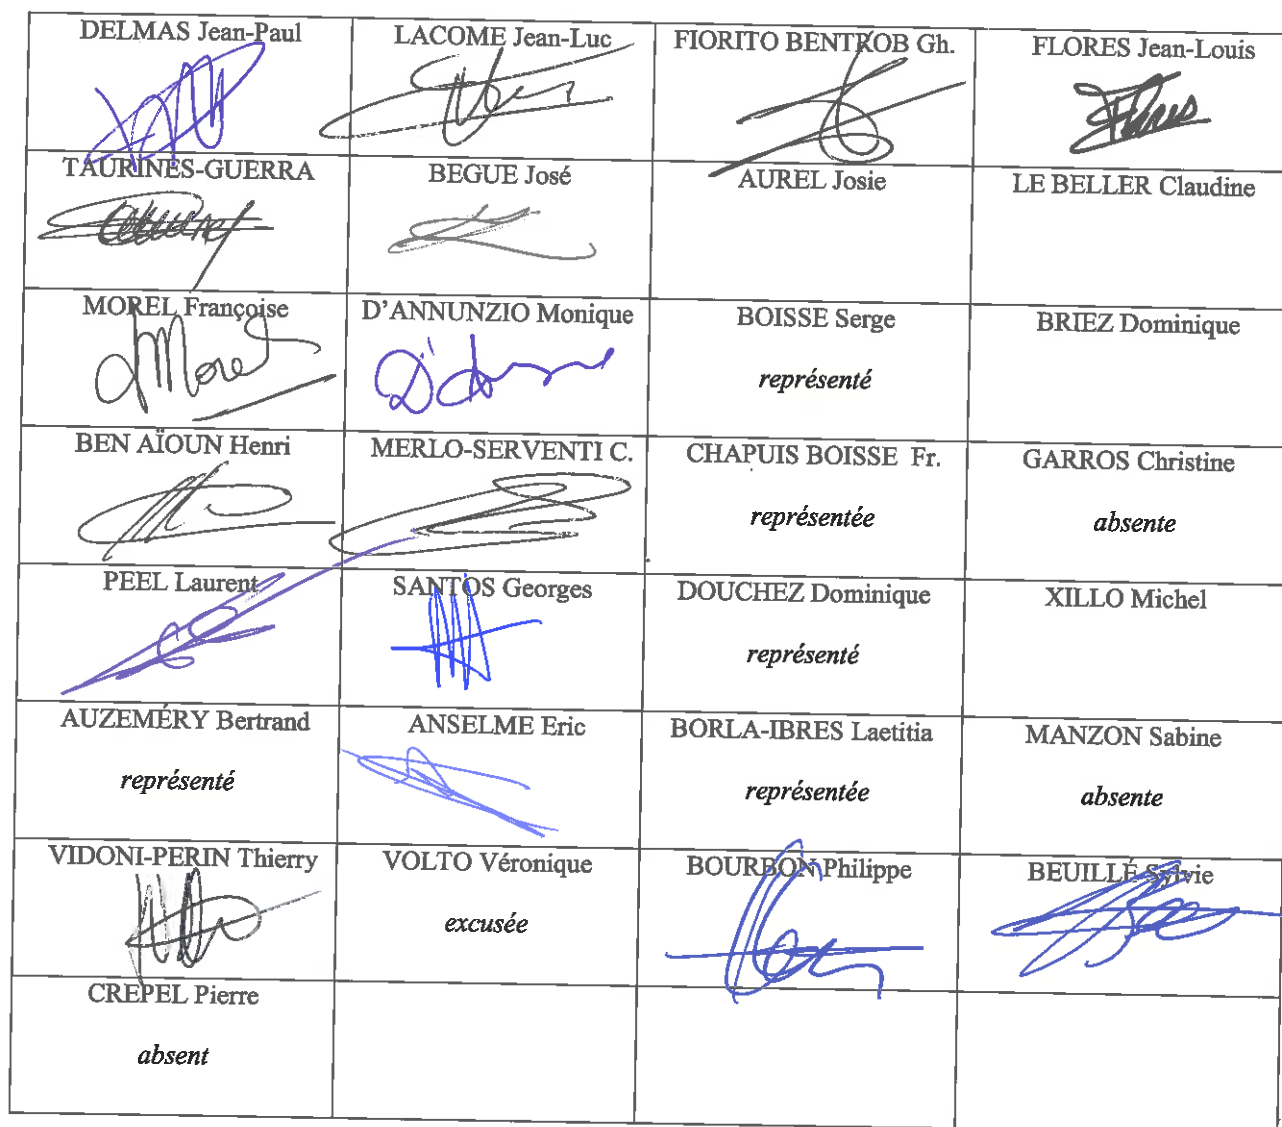 DELMAS Jean-Paul
LACOME Jean-Luc
FIORITO BENTROB Gh.
FLORES Jean-Louis
TAURINES-GUERRA
BEGUE José
AUREL Josie
LE BELLER Claudine
MOREL Françoise
D'ANNUNZIO Monique
BOISSE Serge
représenté
BRIEZ Dominique
BEN AÏOUN Henri
MERLO-SERVENTI C.
CHAPUIS BOISSE Fr.
représentée
GARROS Christine
absente
PEEL Laurent
SANTOS Georges
DOUCHEZ Dominique
représenté
XILLO Michel
AUZEMÉRY Bertrand
représenté
ANSELME Eric
BORLA-IBRES Laetitia
représentée
MANZON Sabine
absente
VIDONI-PERIN Thierry
VOLTO Véronique
excusée
BOURBON Philippe
BEUILLÉ Sylvie
CREPEL Pierre
absent